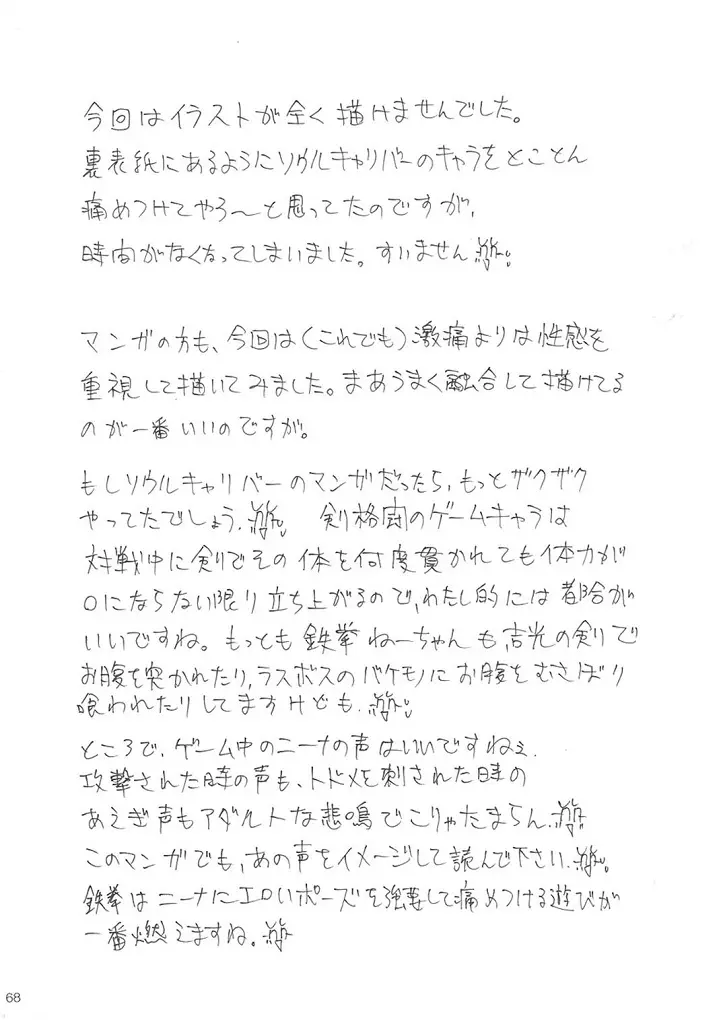 今回はイラストが全く描けませんでした。
裏表紙にあるようにソウルキャリバーのキャラをとことん
痛めつけてやろ〜と思ってたのですが、
時間がなくなってしまいました。すいません
マンガの方も、今回は(これでも)激痛よりは性感を
重視して描いてみました。まあうまく融合して描けてる
のが一番いいのですが。
もしソウルキャリバーのマンガだったら、もっとザクザク
やってたでしょう。剣格闘のゲームキャラは
対戦中に剣でその体を何度貫かれても体力が
0にならない限り立ち上がるので、わたし的には都合が
いいですね。もっとも鉄拳ねーちゃんも、吉光の剣で
お腹を突かれたり、ラスボスのバケモノにお腹をむさぼり
喰われたりしてますけども。
ところで、ゲーム中のニーナの声はいいですねぇ。
攻撃された時の声も、トドメを刺された時の
あえぎ声もアダルトな悲鳴でこりゃたまらん。
このマンガでも、あの声をイメージして読んで下さい。
鉄拳はニーナにエロいポーズを強要して痛めつける遊びが
一番燃えますね。
68